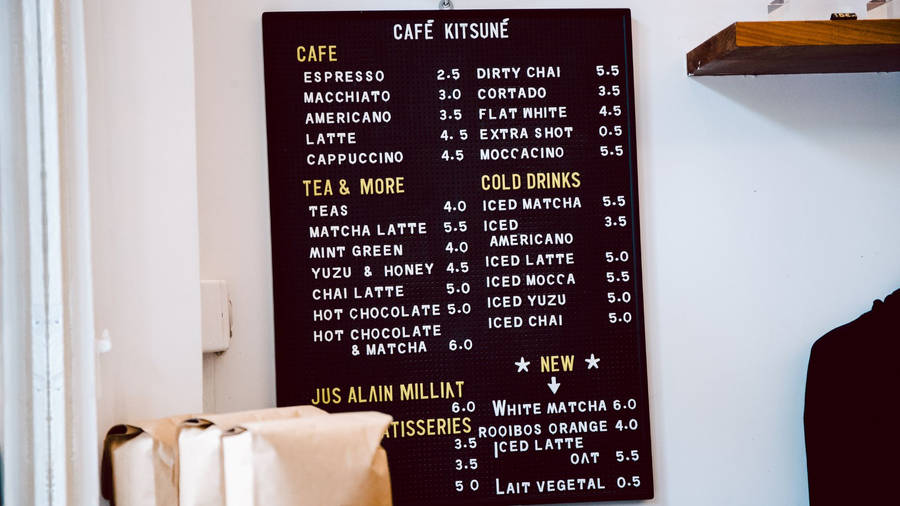 CAFÉ KITSUNÉ
CAFE
ESPRESSO 2.5
MACCHIATO 3.0
AMERICANO 3.5
LATTE 4.5
CAPPUCCINO 4.5
DIRTY CHAI 5.5
CORTADO 3.5
FLAT WHITE 4.5
EXTRA SHOT 0.5
MOCCACINO 5.5
TEA & MORE
TEAS 4.0
MATCHA LATTE 5.5
MINT GREEN 4.0
YUZU & HONEY 4.5
CHAI LATTE 5.0
HOT CHOCOLATE 5.0
HOT CHOCOLATE
& MATCHA 6.0
COLD DRINKS
ICED MATCHA 5.5
ICED 3.5
AMERICANO
ICED LATTE 5.0
ICED MOCCA 5.5
ICED YUZU 5.0
ICED CHAI 5.0
JUS ALAIN MILLIAT
6.0
3.5
3.5
5 0
* NEW *
WHITE MATCHA 6.0
ROOIBOS ORANGE 4.0
ICED LATTE
OAT 5.5
LAIT VEGETAL 0.5